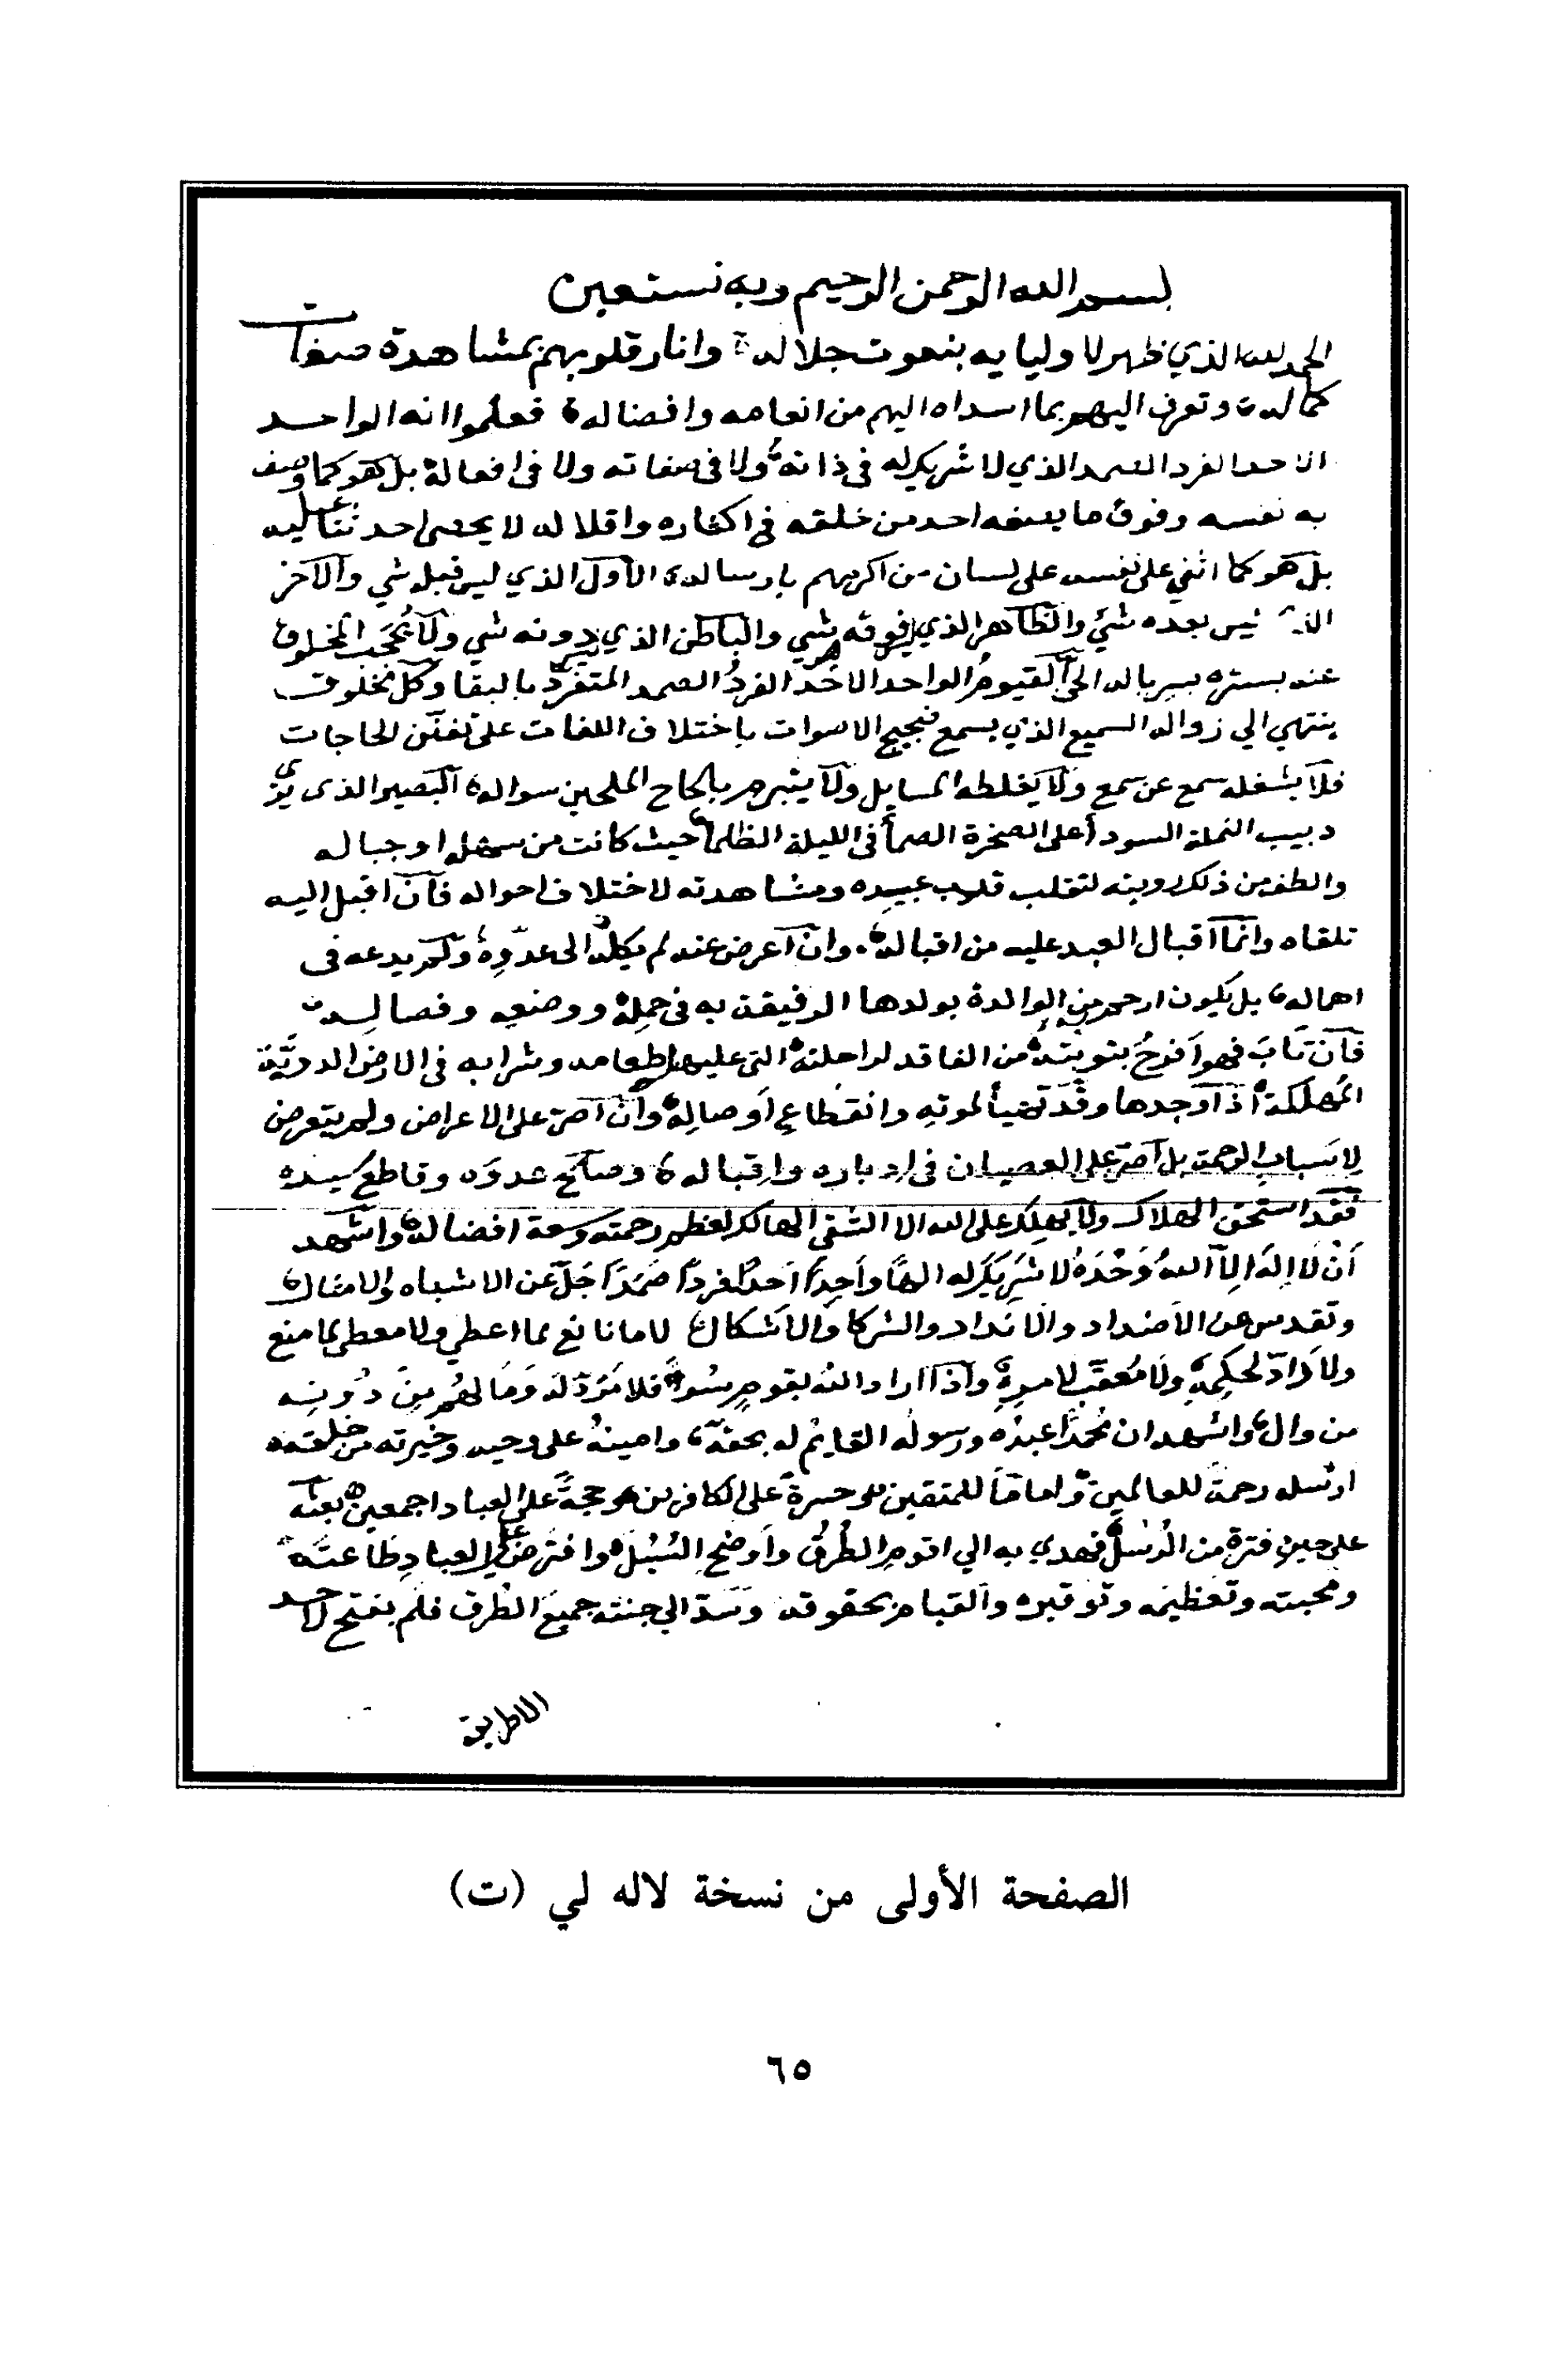 بسم الله الرحمن الرحيم وبه نستعين
الحمد لله الذي ظهر لاوليايه بنعوت جلاله وانار قلوبهم بمشاهدة صفات
كماله وتعرف اليهم بما اسداه اليهم من انعامه وافضاله فعلموا انه الواحد
الاحد الفرد الصمد الذي لا شريك له في ذاته ولا في صفاته ولا في افعاله بل هو كما وصف
به نفسه وفوق ما يصفه احد من خلقه في اكثاره واقلاله لا يحصى احد ثنا عليه
بل هو كما اثني على نفسه على لسان من اكرمهم بارساله الأول الذي ليس قبله شي والآخر
الذي ليس بعده شئ والظاهر الذي ليس فوقه شي والباطن الذي دونه شي ولا يحجب المخلوق
عنه بستره بسرباله الحي القيوم الواحد الاحد الفرد الصمد المتفرد بالبقا وكل مخلوق
ينتهي الي زواله السميع الذي يسمع ضجيج الاصوات باختلاف اللغات على تفنن الحاجات
فلا يشغله سمع عن سمع ولا يغلطه المسايل ولا يتبرم بالحاح الملحين سواله البصير الذى يرى
دبيب النملة السودا على الصخرة الصما في الليلة الظلما حيث كانت من سهله او جباله
والطف من ذلك رويته لتقلب قلب عبيده ومشاهدته لاختلاف احواله فان اقبل اليه
تلقاه وانما اقبال العبد عليه من اقباله وان اعرض عنه لم يكله الى عدوه ولم يدعه فى
اهماله بل يكون ارحم من الوالدة بولدها الرفيقة به في حمله ووضعه وفصاله
فان تاب فهو افرح بتوبته من الفاقد لراحلته التى عليها طعامه وشرابه فى الارض الدوية
المهلكة اذا وجدها وقد تهيأ لموته وانقطاع أوصاله وان اصر على الاعراض ولم يتعرض
لاسباب الرحمة بل اصر على العصيان فى إدباره وإقباله وصالح عدوه وقاطع سيده
فقد استحق الهلاك ولا يهلك على الله الا الشقي الهالك لعظم رحمته وسعة افضاله واشهد
أن لا اله إلا الله وحده لا شريك له الها واحدا احدا فردا صمدا جل عن الاشباه والامثال
وتقدس عن الاضداد والانداد والشركا والاشكال لا مانع لما اعطي ولا معطي لما منع
ولا راد لحكمه ولا معقب لامره واذا اراد الله بقوم سوا فلا مرد له وما لهم من دونه
من وال واشهد ان محمدا عبده ورسوله القايم له بحقه وامينه على وحيه وخيرته من خلقه
ارسله رحمة للعالمين واماما للمتقين وحسرة على الكافرين وحجة على العباد اجمعين بعثه
على حين فترة من الرسل فهدي به الي اقوم الطرق واوضح السبل وافترض على العباد طاعته
ومحبته وتعظيمه وتوقيره والقيام بحقوقه وسد الي جنته جميع الطرق فلم يفتح لاحد
الا طريقه
الصفحة الأولى من نسخة لاله لي (ت)
٦٥